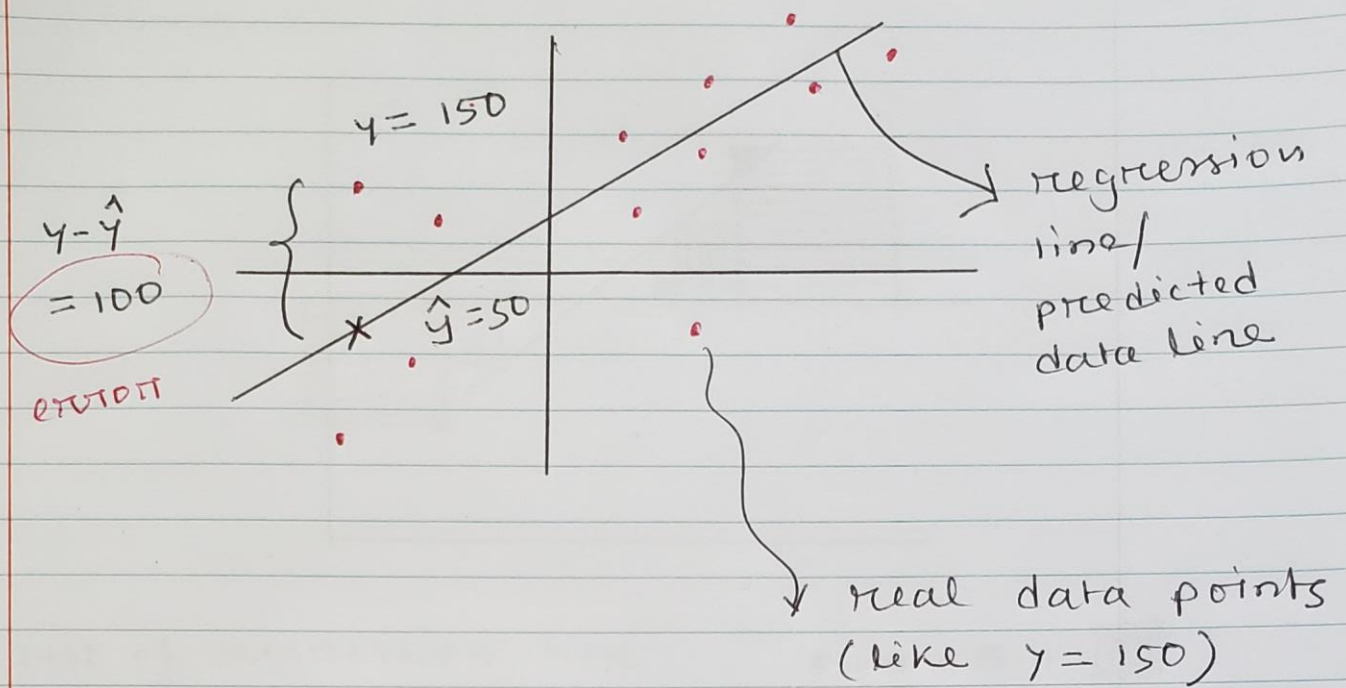 y = 150
y - ŷ
= 100
error
ŷ = 50
regression
line/
predicted
data line
real data points
(like y = 150)